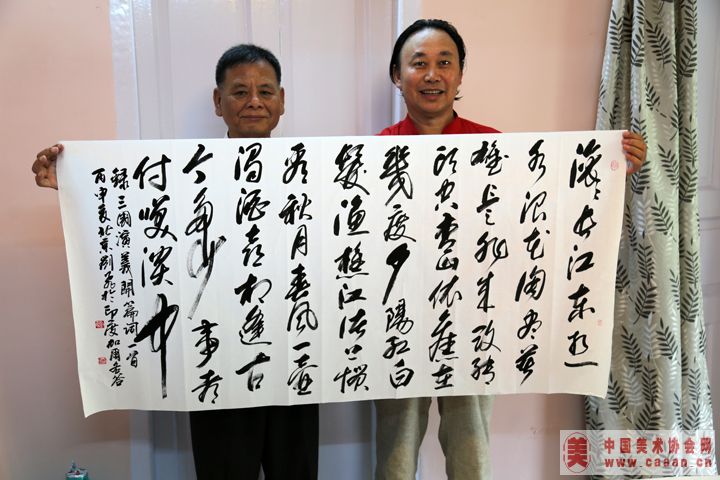 滚滚长江东逝
水浪花淘尽英
雄是非成败转
头空青山依旧在
幾度夕陽红白
髮渔樵江渚上惯
看秋月春风一壶
濁酒喜相逢古
今多少事都
付笑谈中
録三國演義開篇词一首
丙申夏北京劉於印度加
美
中国美术协会网
www.caaan.cn